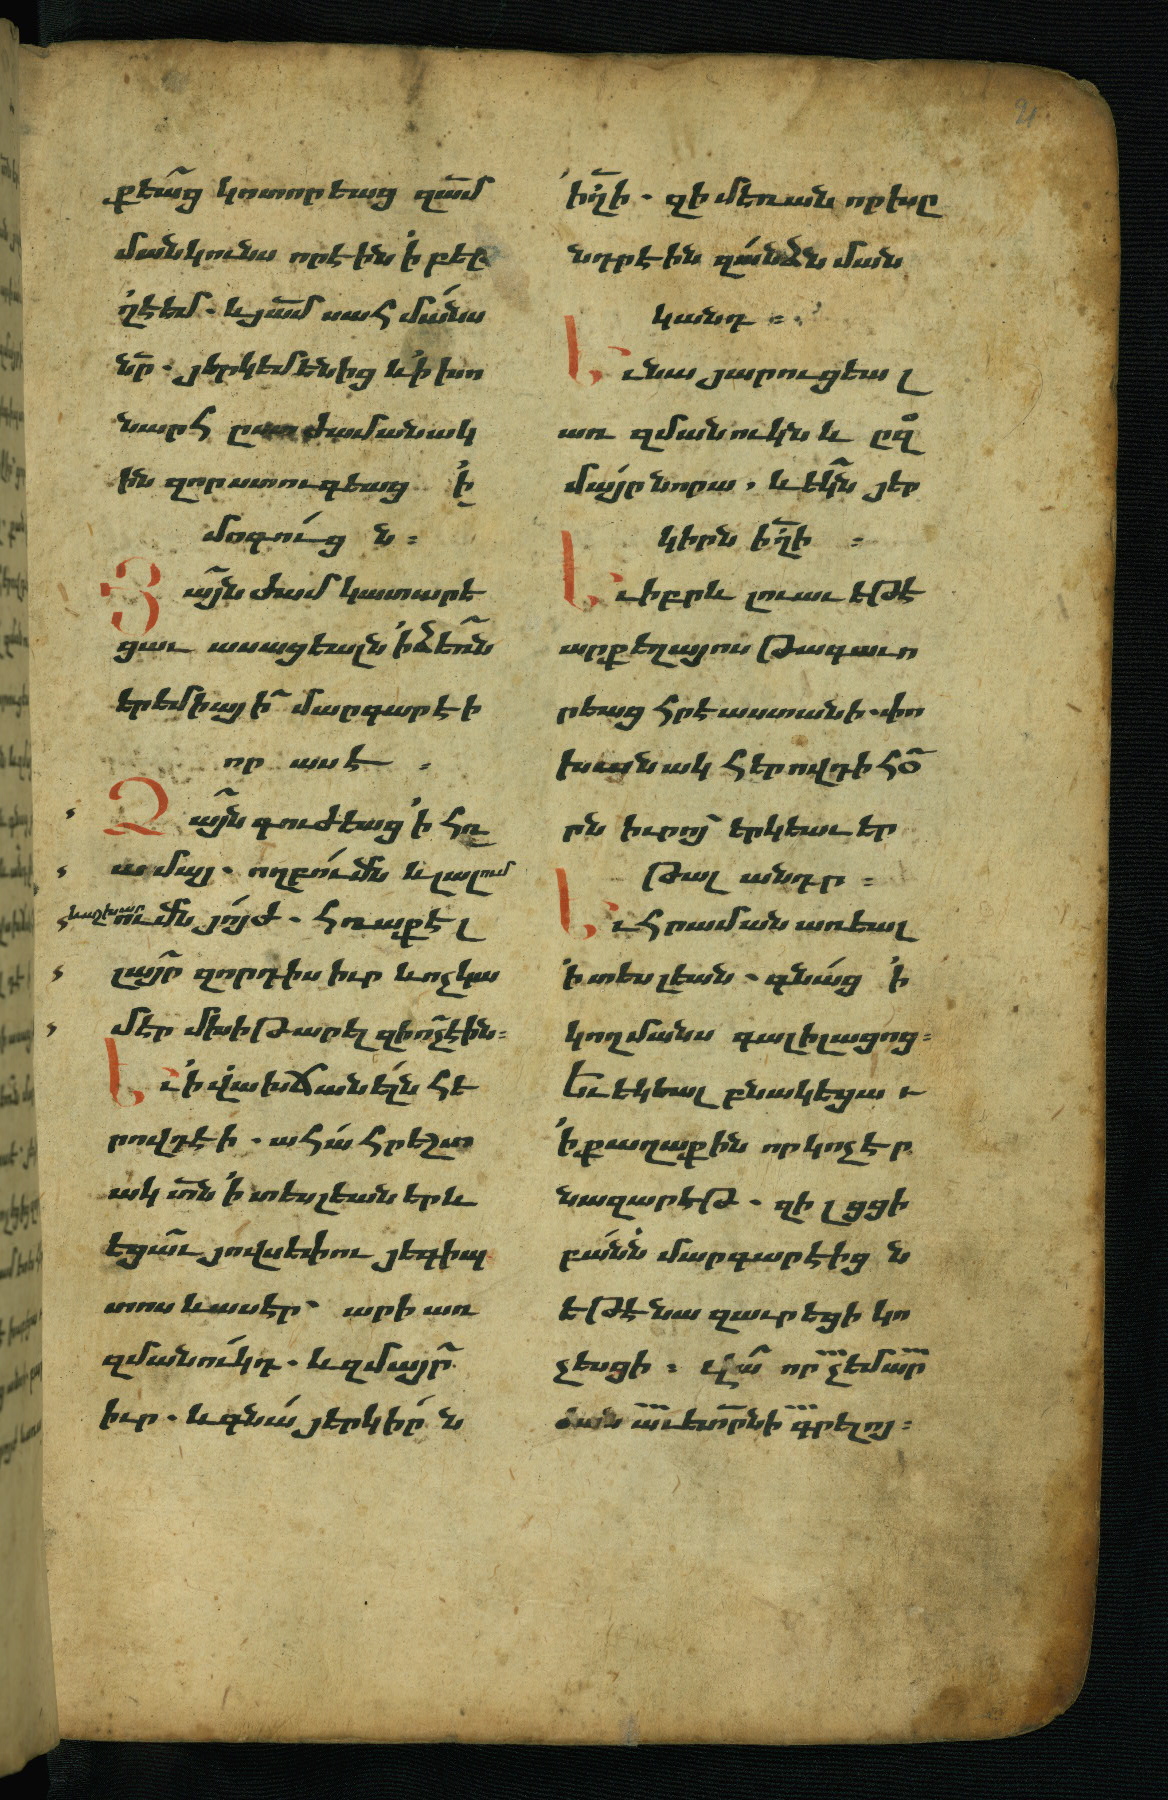 քեա՛ց կոտորեաց զա՟մ
մանկունս որէին ՛ի բեթ
ղէեմ. և յա՟մ սահմա՛նս
ն՟ր. յերկեմենից և ՛ի խո
նարհ ըստ ժամանակ
ին զոր ստուգեաց ՛ի
մօգու՛ց ն։
Յայ՛նժամ կատարե
ցաւ ասացեալն ՛ի ձեռն
երեմիայի մարգարէի
որ ասէ։
Ձայն գուժեաց ՛ի հռ
ամայ. ողբու՛մն և լալում
և աշխար
ումն յո՛յժ. հռաքել
լայր զորդիս իւր և ոչ կա
մէր մխիթարել զի ոչ էին։
Եւ ՛ի վախճանե՛լն հե
րովդէի. ահա՛ հրեշտ
ակ տ՟ն ՛ի տեսլեան երև
եցաւ յովսեփու յեգիպ
տոս և ասէր՝ արի առ
զմանու՛կդ. և զմայր
իւր. և գնա՛ յերկի՛ր ն
ի՟ղի. զի մեռան որ խը
նդրէին զանձն ման
կանդ։
Եւ նա յարուցեալ
առ զմանուկն և ըզ
մայր նորա, և եկն յեր
կիրն ի՟ղի։
Եւ իբրև լուաւ եթէ
արքեղայոս թագաւո
րեաց հրէաստանի. փո
խանակ հերովդի հօ
րն իւրոյ՝ երկեաւ եր
թալ անդր։
Եւ հրաման առեալ
՛ի տեսլեան. գնա՛ց ՛ի
կողմանս գալիլացոց։
Եւ եկեալ բնակեցաւ
՛ի քաղաքին որ կոչէր
նազարէթ. զի լցցի
բա՛նն մարգարէից ն
եթէ նազաւրեցի կո
չեսցի։ որ չեմ ար՟
ժան աւետ՟րնի գրելոյ։